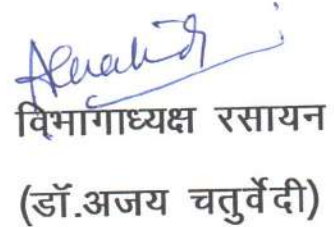 विभागाध्यक्ष रसायन
(डॉ.अजय चतुर्वेदी)